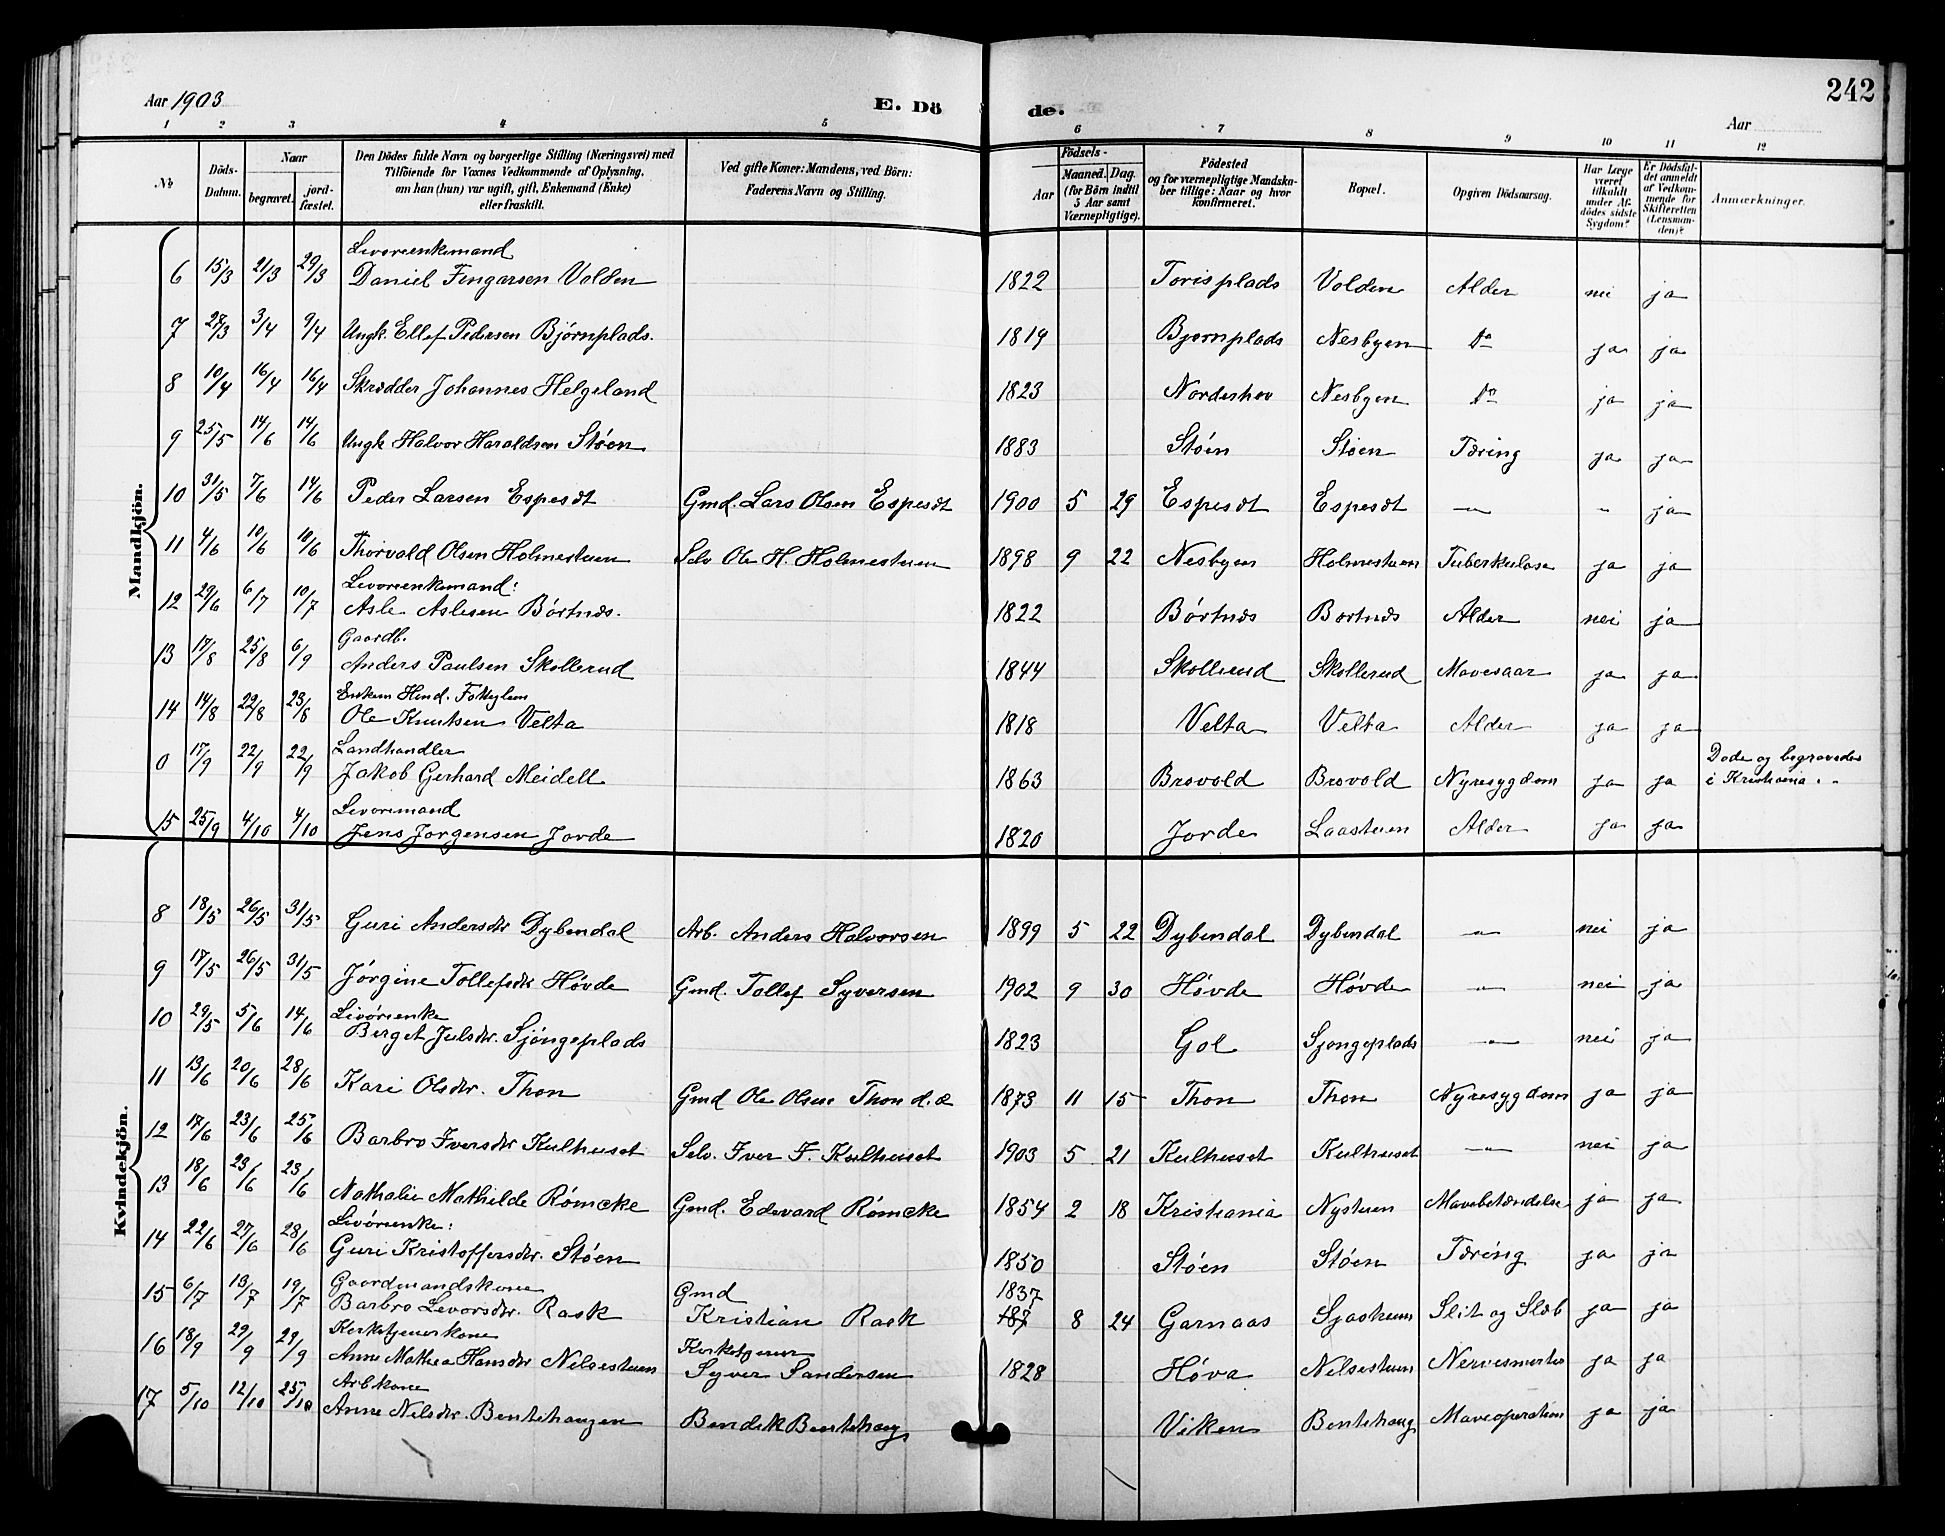 242
Aar 1903
E. Dö
de.
Aar
1 2 3 4 5 6 7 8 9 10 11 12
No
Döds-Datum.
Naar
begravet.
jord-fæstet.
Den Dödes fulde Navn og borgerlige Stilling (Næringsvei) med
Tilföiende for Voxnes Vedkommende af Oplysning,
om han (hun) var ugift, gift, Enkemand (Enke)
eller fraskilt.
Ved gifte Koner: Mandens, ved Börn:
Faderens Navn og Stilling.
Födsels-
Aar
Maaned. Dag.
(for Börn indtil
5 Aar samt
Værnepligtige).
Födested
og for værnepligtige Mandska-
ber tillige: Naar og hvor
konfirmeret.
Bopæl.
Opgiven Dödsaarsag.
Har Læge
været
tilkaldt
under Af-
dödes sidste
Sygdom?
Er Dödsfal-
det anmeldt
af Vedkom-
mende for
Skifteretten
(Lensman-
den)?
Anmærkninger.
Mandkjön.
Levoreenkemand
6 15/3 21/3 29/3 Daniel Fingarsen Volden 1822 Torisplads Volden Alder nei ja
7 28/3 3/4 9/4 Ungk. Ellef Pedersen Bjørnplads. 1819 Bjørnplads Nesbyen Do ja ja
8 10/4 16/4 16/4 Skrædder Johannes Helgeland 1823 Norderhov Nesbyen Do ja ja
9 25/5 14/6 14/6 Ungk Halvor Haraldsen Støen 1883 Støen Støen Tæring ja ja
10 31/5 7/6 14/6 Peder Larsen Espesdt Gmd. Lars Olsen Espesdt 1900 5 29 Espesdt Espesdt -"- " ja
11 4/6 10/6 10/6 Thorvald Olsen Holmestuen Selv Ole H. Holmestuen 1898 9 22 Nesbyen Holmestuen Tuberkulose ja ja
Levoreenkemand:
12 29/6 6/7 10/7 Asle Aslesen Børtnæs. 1822 Børtnæs Bortnæs Alder nei ja
Gaardb.
13 17/8 25/8 6/9 Anders Paulsen Skollerud 1844 Skollerud Skollerud Mavesaar ja ja
Enkem
14 14/8 22/8 23/8 Ole Knutsen Velta 1818 Velta Velta Alder ja ja
Landhandler
0 17/9 22/9 22/9 Jakob Gerhard Meidell 1863 Brovold Brovold Nyresygdom ja ja Døde og begravedes
i Kristiania.
Levoremand
15 25/9 4/10 4/10 Jens Jorgensen Jorde 1820 Jorde Laastuen Alder ja ja
Kvindekjön.
8 18/5 26/5 31/5 Guri Andersdtr Dybendal Arb. Anders Halvorsen 1899 5 22 Dybendal Dybendal -"- nei ja
9 17/5 26/5 31/5 Jørgine Tollefsdtr Høvde Gmd. Tollef Syversen 1902 9 30 Høvde Høvde -"- nei ja
Livørenke
10 29/5 5/6 14/6 Berget Julsdtr. Sjøngeplads 1823 Gol Sjongeplads -"- nei ja
11 13/6 20/6 28/6 Kari Olsdtr. Thon Gmd Ole Olsen Thon d.æ 1873 11 15 Thon Thon Nyresygdom ja ja
12 17/6 23/6 25/6 Barbro Iversdtr Kulhuset Selv. Iver F. Kulhuset 1903 5 21 Kulhuset Kulhuset -"- nei ja
13 18/6 23/6 23/6 Nathalie Mathilde Rømcke Gmd. Edevard Rømcke 1854 2 18 Kristiania Nystuen Mavebetændelse ja ja
Levørienke:
14 22/6 27/6 28/6 Guri Kristoffersdtr. Støen 1850 Støen Støen Tæring ja ja
Gaardmandskone Gmd 1837
15 6/7 13/7 19/7 Barbro Levorsdtr. Rask Kristian Rask 187 8 24 Garnaas Sjastuen Slit og Slæb ja ja
Kirketjenerkone Kirketjener
16 18/9 29/9 29/9 Anne Mathea Hansdtr Nelsestuen Syver Sandersen 1828 Høva Nelsestuen Nervesmerter ja ja
Arbkone
17 5/10 12/10 25/10 Anne Nelsdtr. Bentehaugen Bendik Bentehaug Viken Bentehaug Maveoperation ja ja